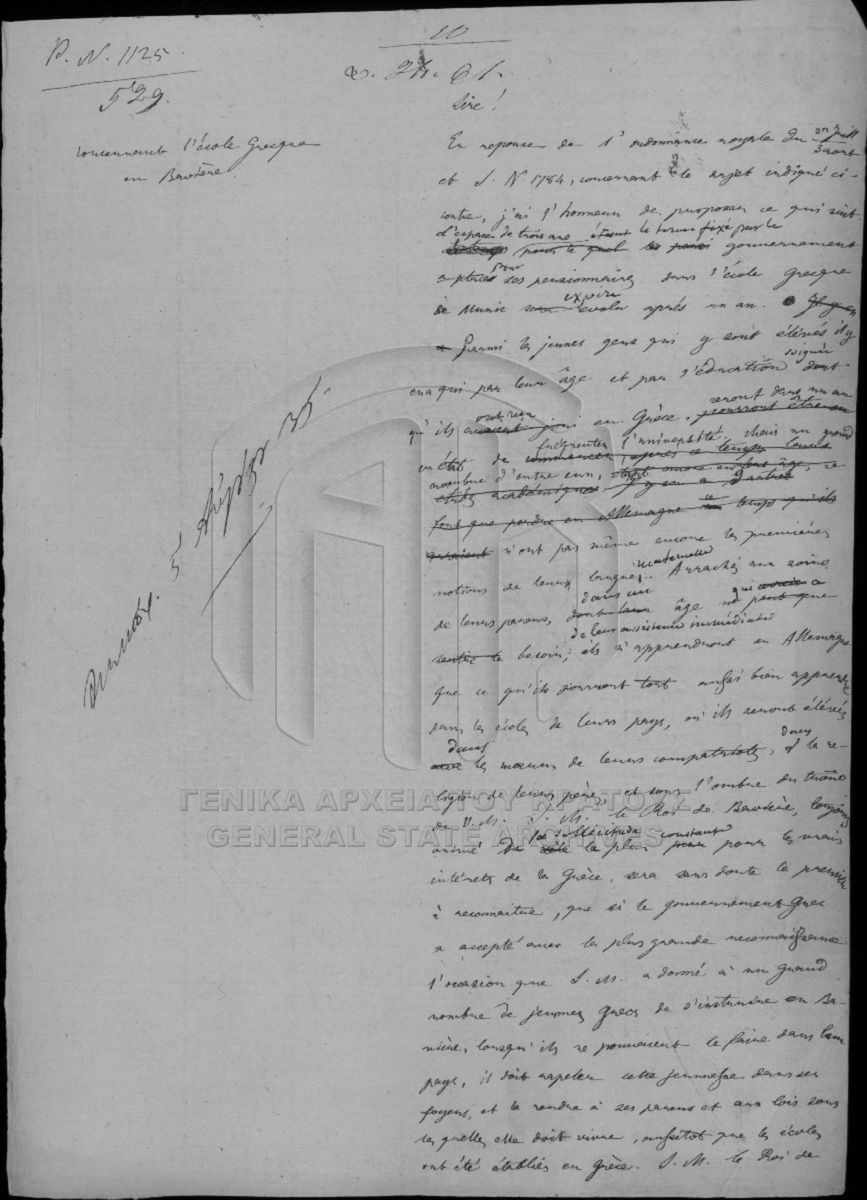 P. N. 1125.
529.
10
Concernant l'école Grecque
en Bavière.
Sire!
En reponse de l'ordonnance royale du
3 aout
et S. N 1784, concernant le sujet indiqué ci-
contre, j'ai l'honneur de proposer ce qui suit.
L'espace de trois ans étant le terme fixé par le
gouvernement
pour ses pensionnaires dans l'école grecque
de Munic expire après un an.
Parmi les jeunes gens qui y sont élévés il y
en a qui par leur âge et par l'éducation soignée
qu'ils ont reçu en Grèce. seront dans un an
en état de fréquenter l'université. Mais un grand
nombre d'entre eux,
font que perdre en Allemagne le temps qu'ils
n'ont pas même encore les premières
notions de leur langue maternelle. Arrachés aux soins
de leurs parens, dans un âge qui a
de leur assistance immédiate
besoin; ils n'apprendront en Allemagne
que ce qu'ils pourront tout aussi bien apprendre
dans les écoles de leurs pays, où ils seront élévés
dans les mœurs de leurs compatriotes, dans la re-
ligion de leurs pères, et sous l'ombre du trône
de V. M. S. M. le Roi de Bavière, toujours
animé de la sollicitude la plus constante pour les vrais
intérêts de la Grèce, sera sans doute le premier
à reconnaitre, que si le gouvernement Grec
a accepté avec la plus grande reconnaissance
l'occasion que S. M. a donné à un grand
nombre de jeunes Grecs de s'instruire en Ba-
vière, lorsqu'ils ne pouvaient le faire dans leur
pays, il doit rapeler cette jeunesse dans ses
foyers, et la rendre à ses parens et aux lois sous
les quelles elle doit vivre, aussitot que les écoles
ont été établies en Grèce. S. M. le Roi de
ΓΕΝΙΚΑ ΑΡΧΕΙΑ ΤΟΥ ΚΡΑΤΟΥΣ
GENERAL STATE ARCHIVES